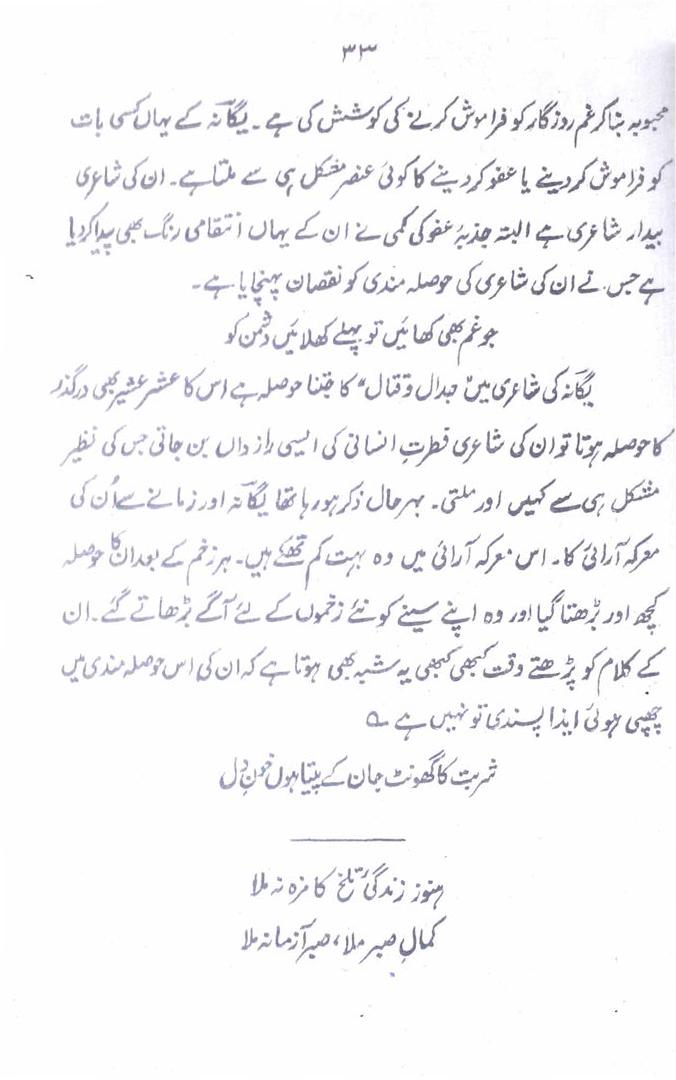 ۳۳
محبوبہ بنا کر غم روزگار کو فراموش کرنے کی کوشش کی ہے۔ یگانہ کے یہاں کسی بات
کو فراموش کر دینے یا عفو کر دینے کا کوئی عنصر مشکل ہی سے ملتا ہے۔ ان کی شاعری
بیدار شاعری ہے البتہ جذبۂ عفو کی کمی نے ان کے یہاں انتقامی رنگ بھی پیدا کر دیا
ہے جس نے ان کی شاعری کی حوصلہ مندی کو نقصان پہنچایا ہے۔
جو غم بھی کھائیں تو پہلے کھلائیں دشمن کو
یگانہ کی شاعری میں "جدال و قتال" کا جتنا حوصلہ ہے اس کا عشر عشیر بھی درگذر
کا حوصلہ ہوتا تو ان کی شاعری فطرتِ انسانی کی ایسی راز داں بن جاتی جس کی نظیر
مشکل ہی سے کہیں اور ملتی۔ بہر حال ذکر ہو رہا تھا یگانہ اور زمانے سے اُن کی
معرکہ آرائی کا۔ اس معرکہ آرائی میں وہ بہت کم تھکے ہیں۔ ہر زخم کے بعد ان کا حوصلہ
کچھ اور بڑھتا گیا اور وہ اپنے سینے کو نئے زخموں کے لئے آگے بڑھاتے گئے۔ ان
کے کلام کو پڑھتے وقت کبھی کبھی یہ شبہ بھی ہوتا ہے کہ ان کی اس حوصلہ مندی میں
چھپی ہوئی ایذا پسندی تو نہیں ہے ؎
شربت کا گھونٹ جان کے پیتا ہوں خونِ دل
ہنوز زندگیٔ تلخ کا مزہ نہ ملا
کمالِ صبر ملا، صبر آزما نہ ملا